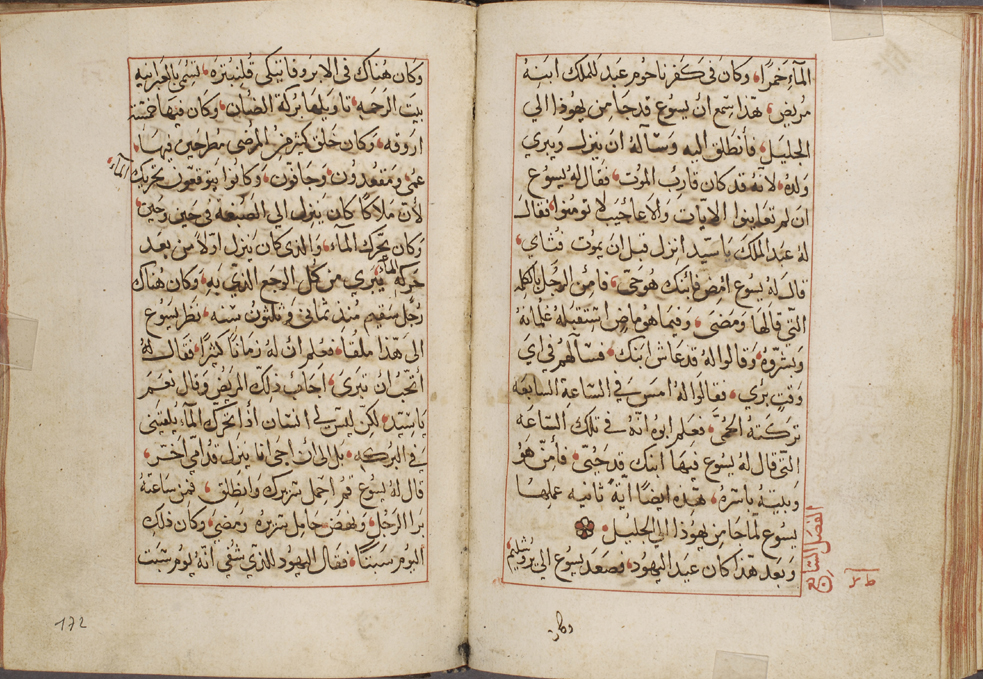 المآء خمرًا، وكان في كفرناحوم عبد للملك ابنه
مريض، هذا سمع ان يسوع قد جا من يهوذا الي
الجليل، فانطلق اليه وسآله ان ينزل ويبري
ولده، لانه قد كان قارب الموت، فقال له يسوع
ان لم تعاينوا الايات والاعاجيب لا تومنوا، فقال
له عبد الملك يا سيد انزل قبل ان يموت فتاي،
قال له يسوع امض فابنك هو حي، فامن الرجل بالكلمه
التي قالها ومضى، وفيما هو ماض استقبله غلمانه
وبشروه وقالوا له قد عاش ابنك، فسآلهم في اي
وقت بري، فقالوا له امس في الساعة السابعه
تركته الحمى، فعلم ابوه انه في تلك الساعه
التي قال له يسوع فيها ابنك قد حيي، فامن هو
وبيته باسره، هذه ايضا اية ثانيه عملها
يسوع لما جا من يهوذا الي الجليل،
وبعد هذا كان عيد اليهود، فصعد يسوع الي يروشليم
الفصل السابع
وكان
وكان هناك في الابروفاتيكي قلنبتره، تسمى بالعبرانيه
بيت الرحمه، تاويلها بركة الضان، وكان فيها خمسة
اروقه، وكان خلق كثير من المرضى مطرحين فيها،
عمي ومقعدون، وجافون، وكانوا يتوقعون تحريك المآء
لان ملاكا كان ينزل الي الصبغه في حين وحين،
وكان يحرك المآء، والذي كان ينزل اولا من بعد
حركة المآء يبري من كل الوجع الذي به، وكان هناك
رجل سقيم منذ ثماني وثلثون سنه، نظر يسوع
الى هذا ملقا، فعلم ان له زمانا كثيرا، فقال له
اتحب ان تبرى، اجاب ذلك المريض وقال نعم
يا سيد، لكن ليس لي انسان اذا تحرك المآء يلقيني
في البركه، بل الى ان اجي انا ينزل قدامي اخر،
قال له يسوع قم احمل سريرك وانطلق، فمن ساعته
برا الرجل، ونهض حامل سريره ومضى، وكان ذلك
اليوم سبتا، فقال اليهود للذي شفي انه يوم سبت
172